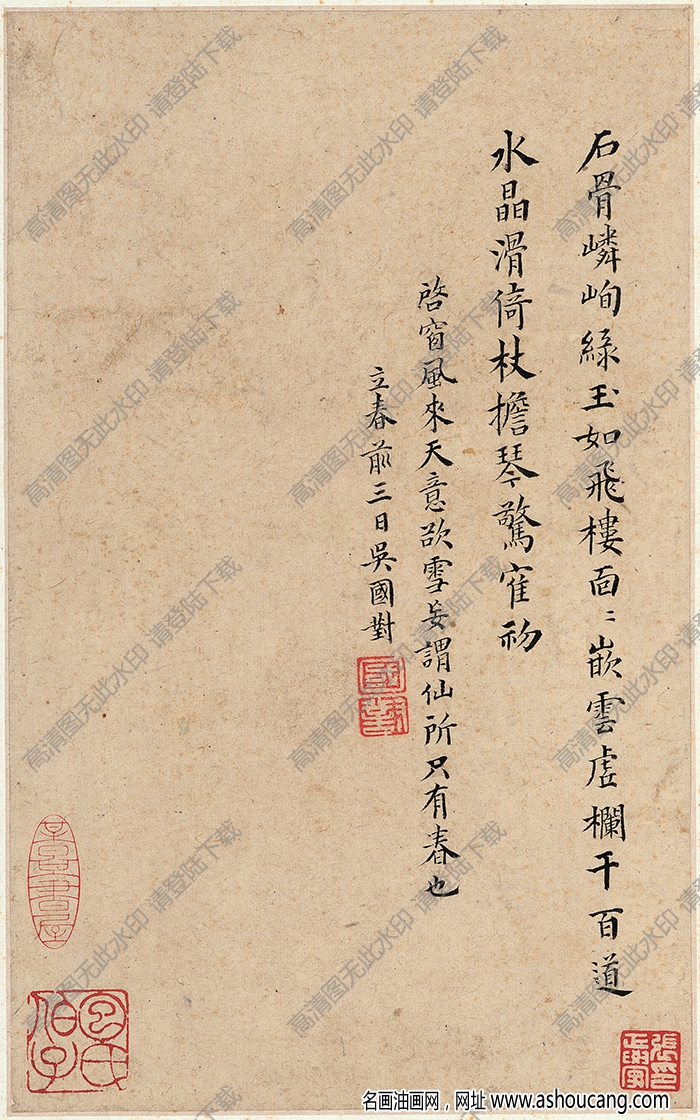 石骨嶙峋綠玉如飛樓面〻嵌雲虛欄干百道
水晶滑倚杖擔琴驚寉礽
啓窗風來天意欲雪妄謂仙所只有春也
立春前三日吳國對
國對
宮氏
伯子
張
高清图无此水印 请登陆下载
名画油画网，网址 www.ashoucang.com